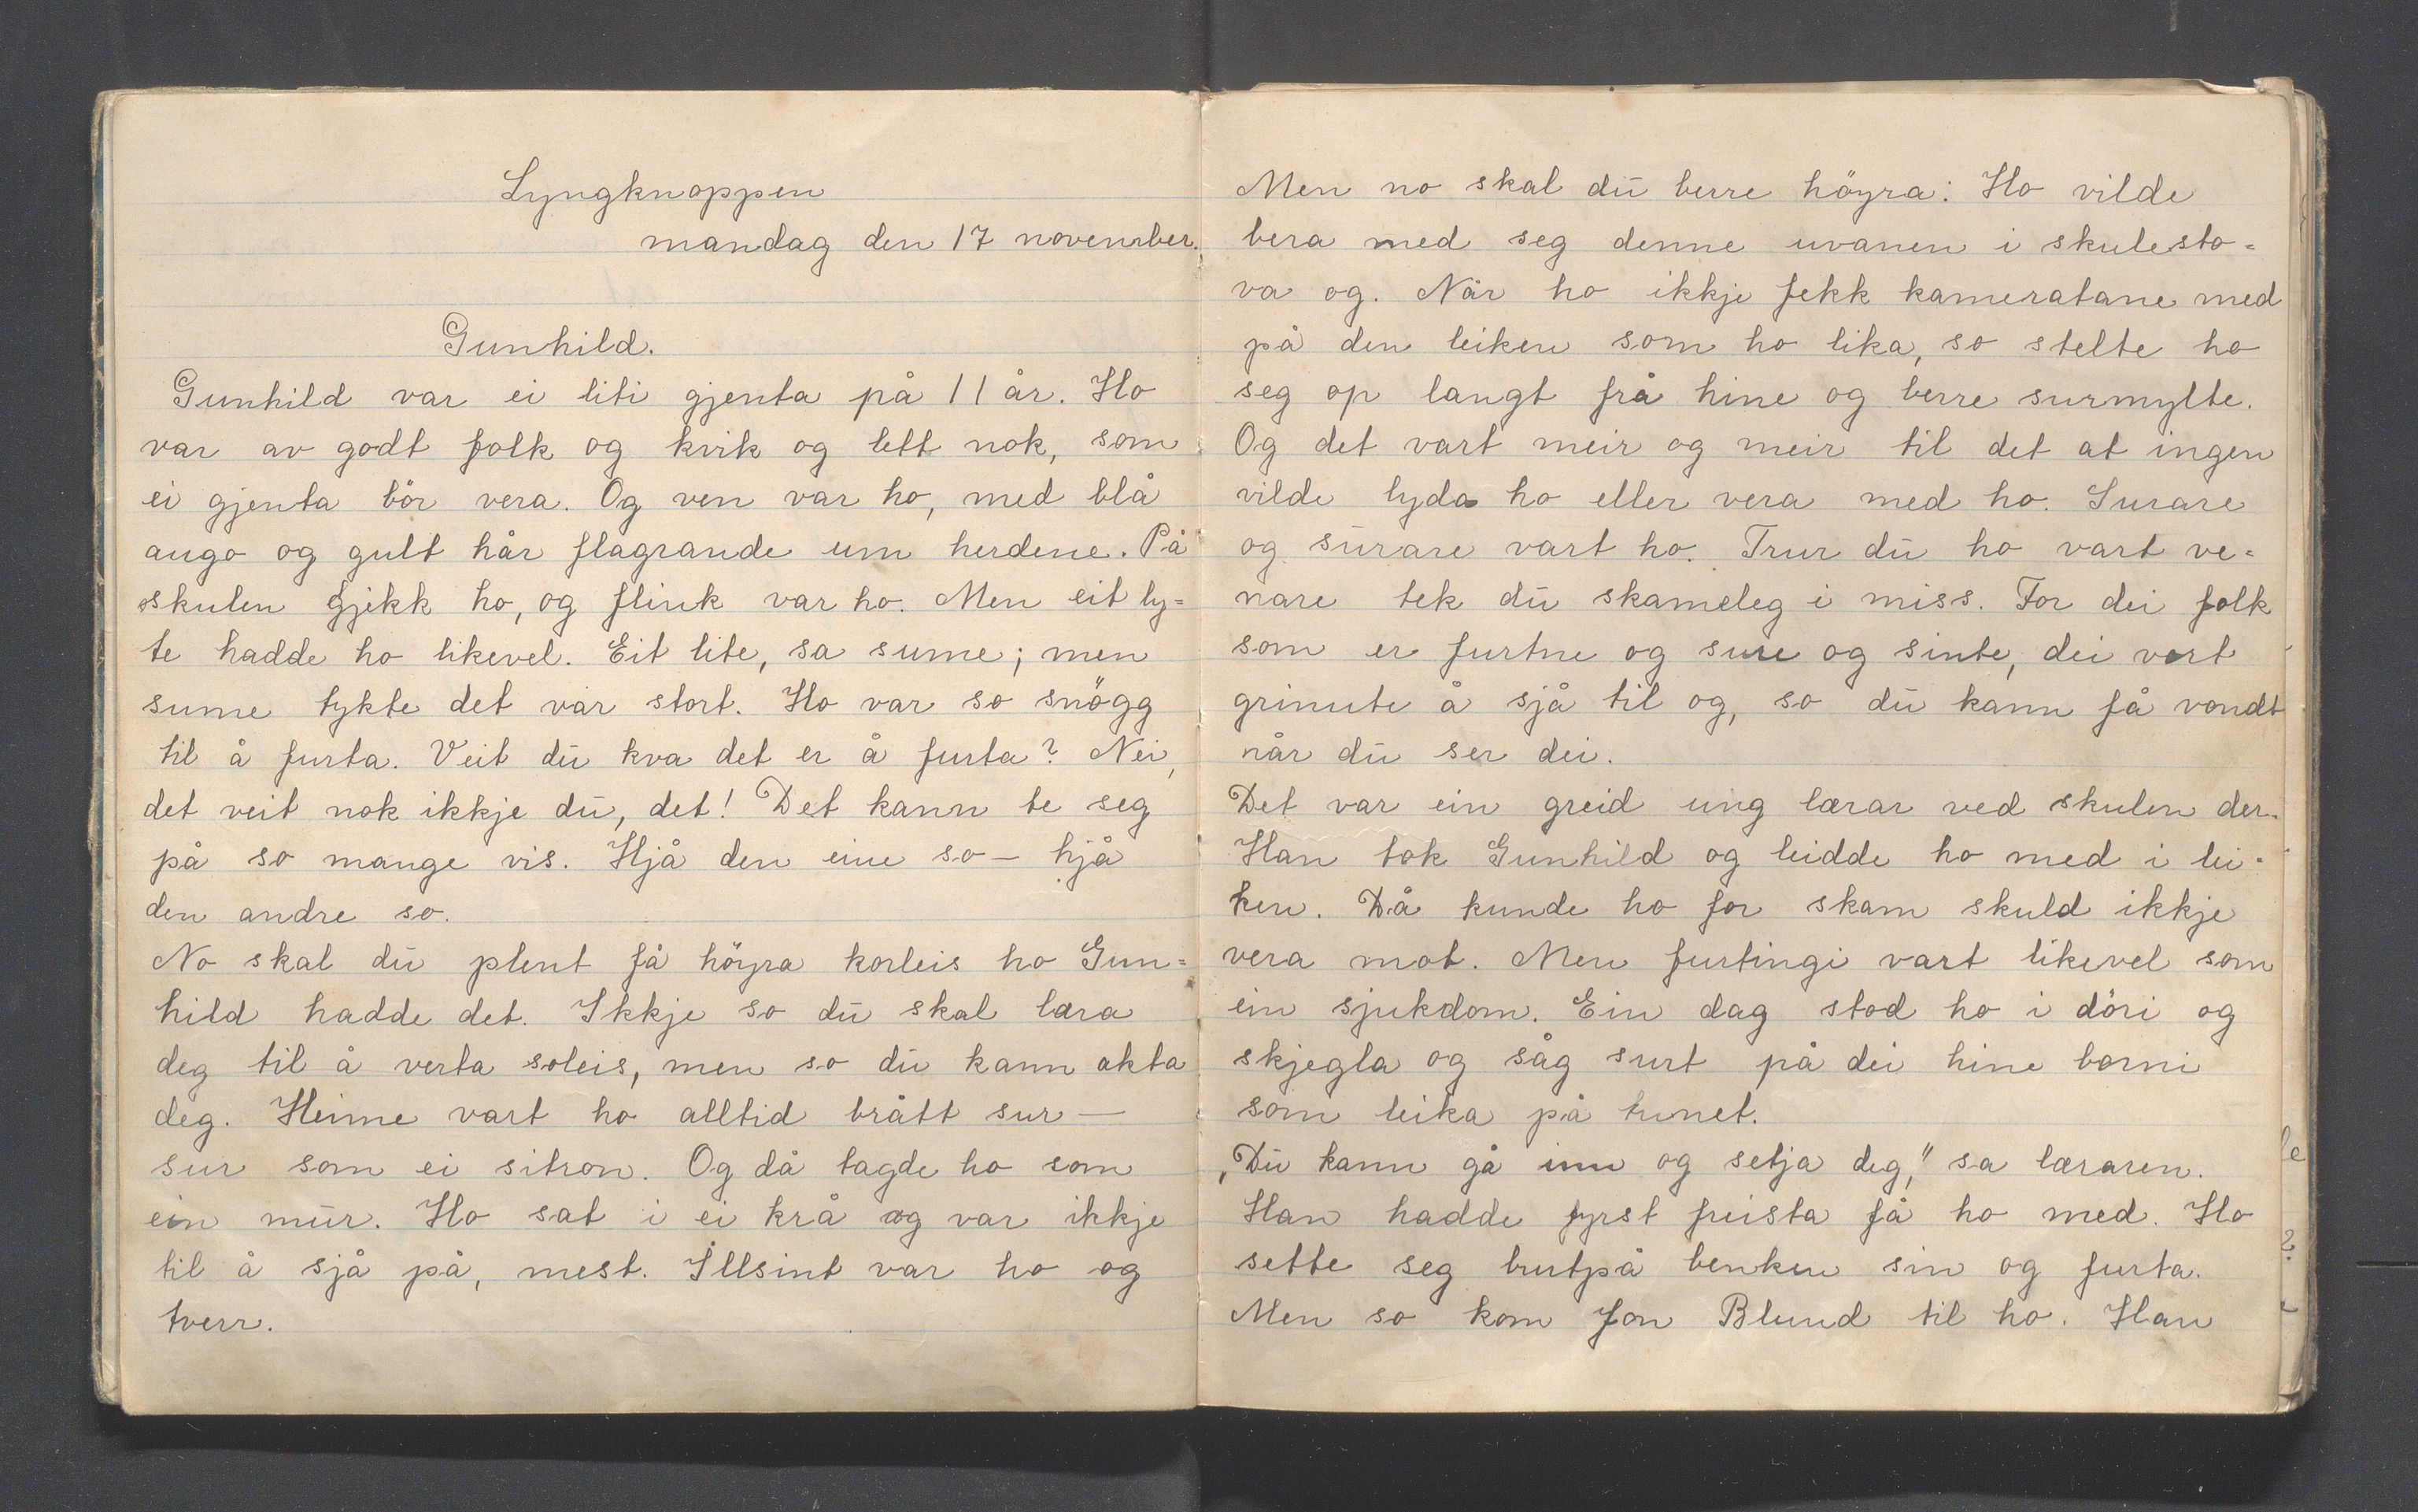 Lyngknoppen
mandag den 17 november.
Gunhild.
Gunhild var ei liti gjenta på 11 år. Ho
var av godt folk og kvik og lett nok, som
ei gjenta bör vera. Og ven var ho, med blå
augo og gult hår flagrande um herdene. På
skulen gjekk ho, og flink var ho. Men eit ly=
te hadde ho likevel. Eit lite, sa sume; men
sume tykte det var stort. Ho var so snögg
til å furta. Veit dū kva det er å furta? Nei,
det veit nok ikkje dū, det! Det kann te seg
på so mange vis. Hjå den eine so – hjå
den andre so.
No skal dū plent få höyra korleis ho Gun=
hild hadde det. Ikkje so dū skal læra
deg til å verta soleis, men so dū kann akta
deg. Heime vart ho alltid brått sur –
sur som ei sitron. Og då tagde ho som
ein mūr. Ho sat i ei krå og var ikkje
til å sjå på, mest. Illsint var ho og
tverr.
Men no skal dū berre höyra: Ho vilde
bera med seg denne uvanen i skulesto=
va og. Når ho ikkje fekk kameratane med
på den leiken som ho lika, so stelte ho
seg op langt frå hine og berre surmylte.
Og det vart meir og meir til det at ingen
vilde lyda ho eller vera med ho. Surare
og sūrare vart ho. Trur dū ho vart ve=
nare tek dū skameleg i miss. For dei folk
som er furtne og sure og sinte, dei vert
grinute å sjå til og, so dū kann få vondt
når dū ser dei.
Det var ein greid ung lærar ved skulen der.
Han tok Gunhild og leidde ho med i lei=
ken. Då kunde ho for skam skuld ikkje
vera mot. Men furtingi vart likevel som
ein sjukdom. Ein dag stod ho i döri og
skjegla og såg surt på dei hine borni
som leika på tunet.
„Dū kann gå inn og setja deg," sa læraren.
Han hadde fyrst freista få ho med. Ho
sette seg burtpå benken sin og furta.
Men so kom Jon Blund til ho. Han